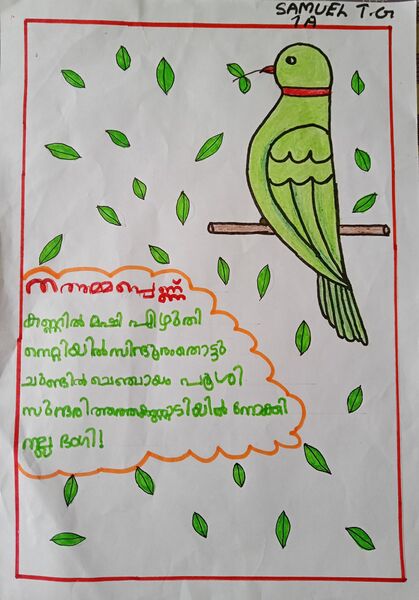 SAMUEL T.G
1A
തത്തമ്മപ്പെണ്ണ്
കണ്ണിൽ മഷി എഴുതി
നെറ്റിയിൽ സിന്ദൂരംതൊട്ടു
ചുണ്ടിൽ ചെഞ്ചായം പൂശി
സുന്ദരിത്തത്തകണ്ണാടിയിൽ നോക്കി
നല്ല ഭംഗി!